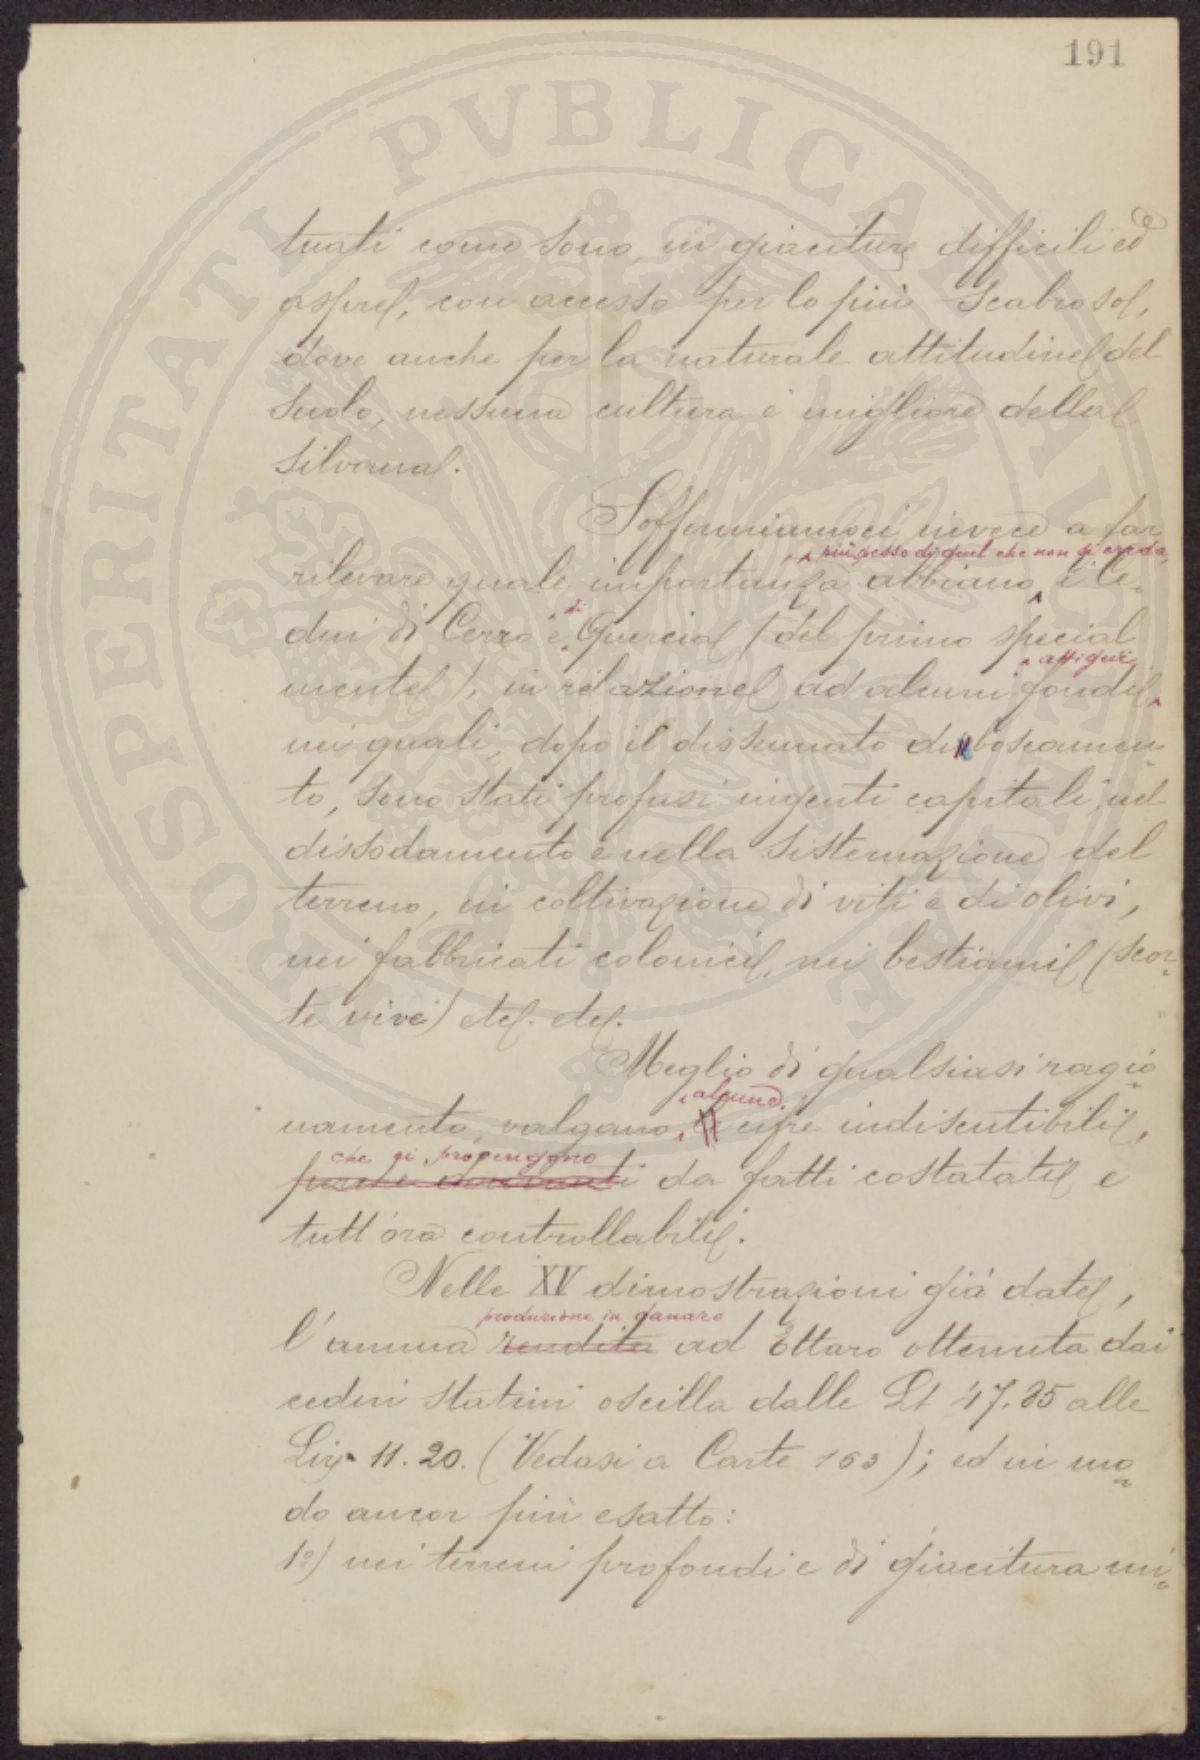 191
PROSPERITATI PVBLICAE AVGENDAE
tuati come sono, in giaciture difficili ed
aspre, con accesso per lo più scabroso,
dove anche per la naturale attitudine del
suolo, nessuna cultura è migliore della
silvana.
Soffermiamoci invece a far
più spesso di quel che non si creda,
rilevare quale importanza abbiano i ce-
di
dui di Cerro e Quercia (del primo special
attigui
mente), in relazione ad alcuni fondi
nei quali, dopo il dissennato diboscamen-
to, sono stati profusi ingenti capitali, nel
dissodamento e nella sistemazione del
terreno, in coltivazione di viti e di olivi,
nei fabbricati colonici, nei bestiami (scor-
te vive) etc. etc.
Meglio di qualsiasi ragio-
alcune
namento, valgano cifre indiscutibili,
che si propengono
da fatti costatati e
tutt'ora controllabili.
Nelle XV dimostrazioni già date,
produzione in danaro
l'annua rendita ad Ettaro ottenuta dai
cedui statini oscilla dalle Lt 47.85 alle
Lir. 11.20. (Vedasi a Carte 163); ed in mo-
do ancor più esatto:
1°) nei terreni profondi e di giacitura mi-